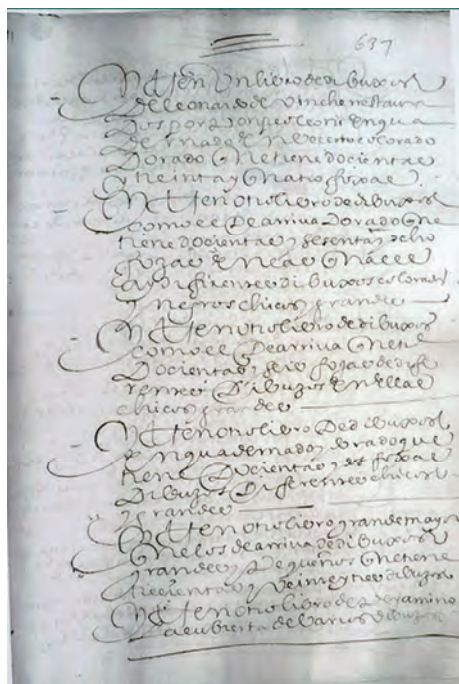 637
Yten Un libro de dibuxos
de leonardo de Vinche restaura
dos por Pompeo leoni enqua
dernado en becerro colorado
Dorado que tiene docientas
treinta y quatro foxas
Yten otro libro de dibuxos
como el de arriva Dorado que
tiene docientas y sesenta y ocho
foxas
diferentes dibuxos colorados
y negros chicos y grandes
Yten otro libro de dibuxos
como el de arriva que tiene
Docientas y seis foxas de dife
rentes Dibuxos en ellas
chicos y grandes
Yten otro libro De dibuxos
enquadernado y dorado que
tiene Docientas y dos foxas
Dibuxos Diferentes chicos
y grandes
Yten otro libro grande mayor
que los de arriva de dibuxos
grandes y Pequeños que tiene
trecientas y veinte y tres dibuxos
Yten otro libro de Pergamino
la cubierta de barios dibuxos